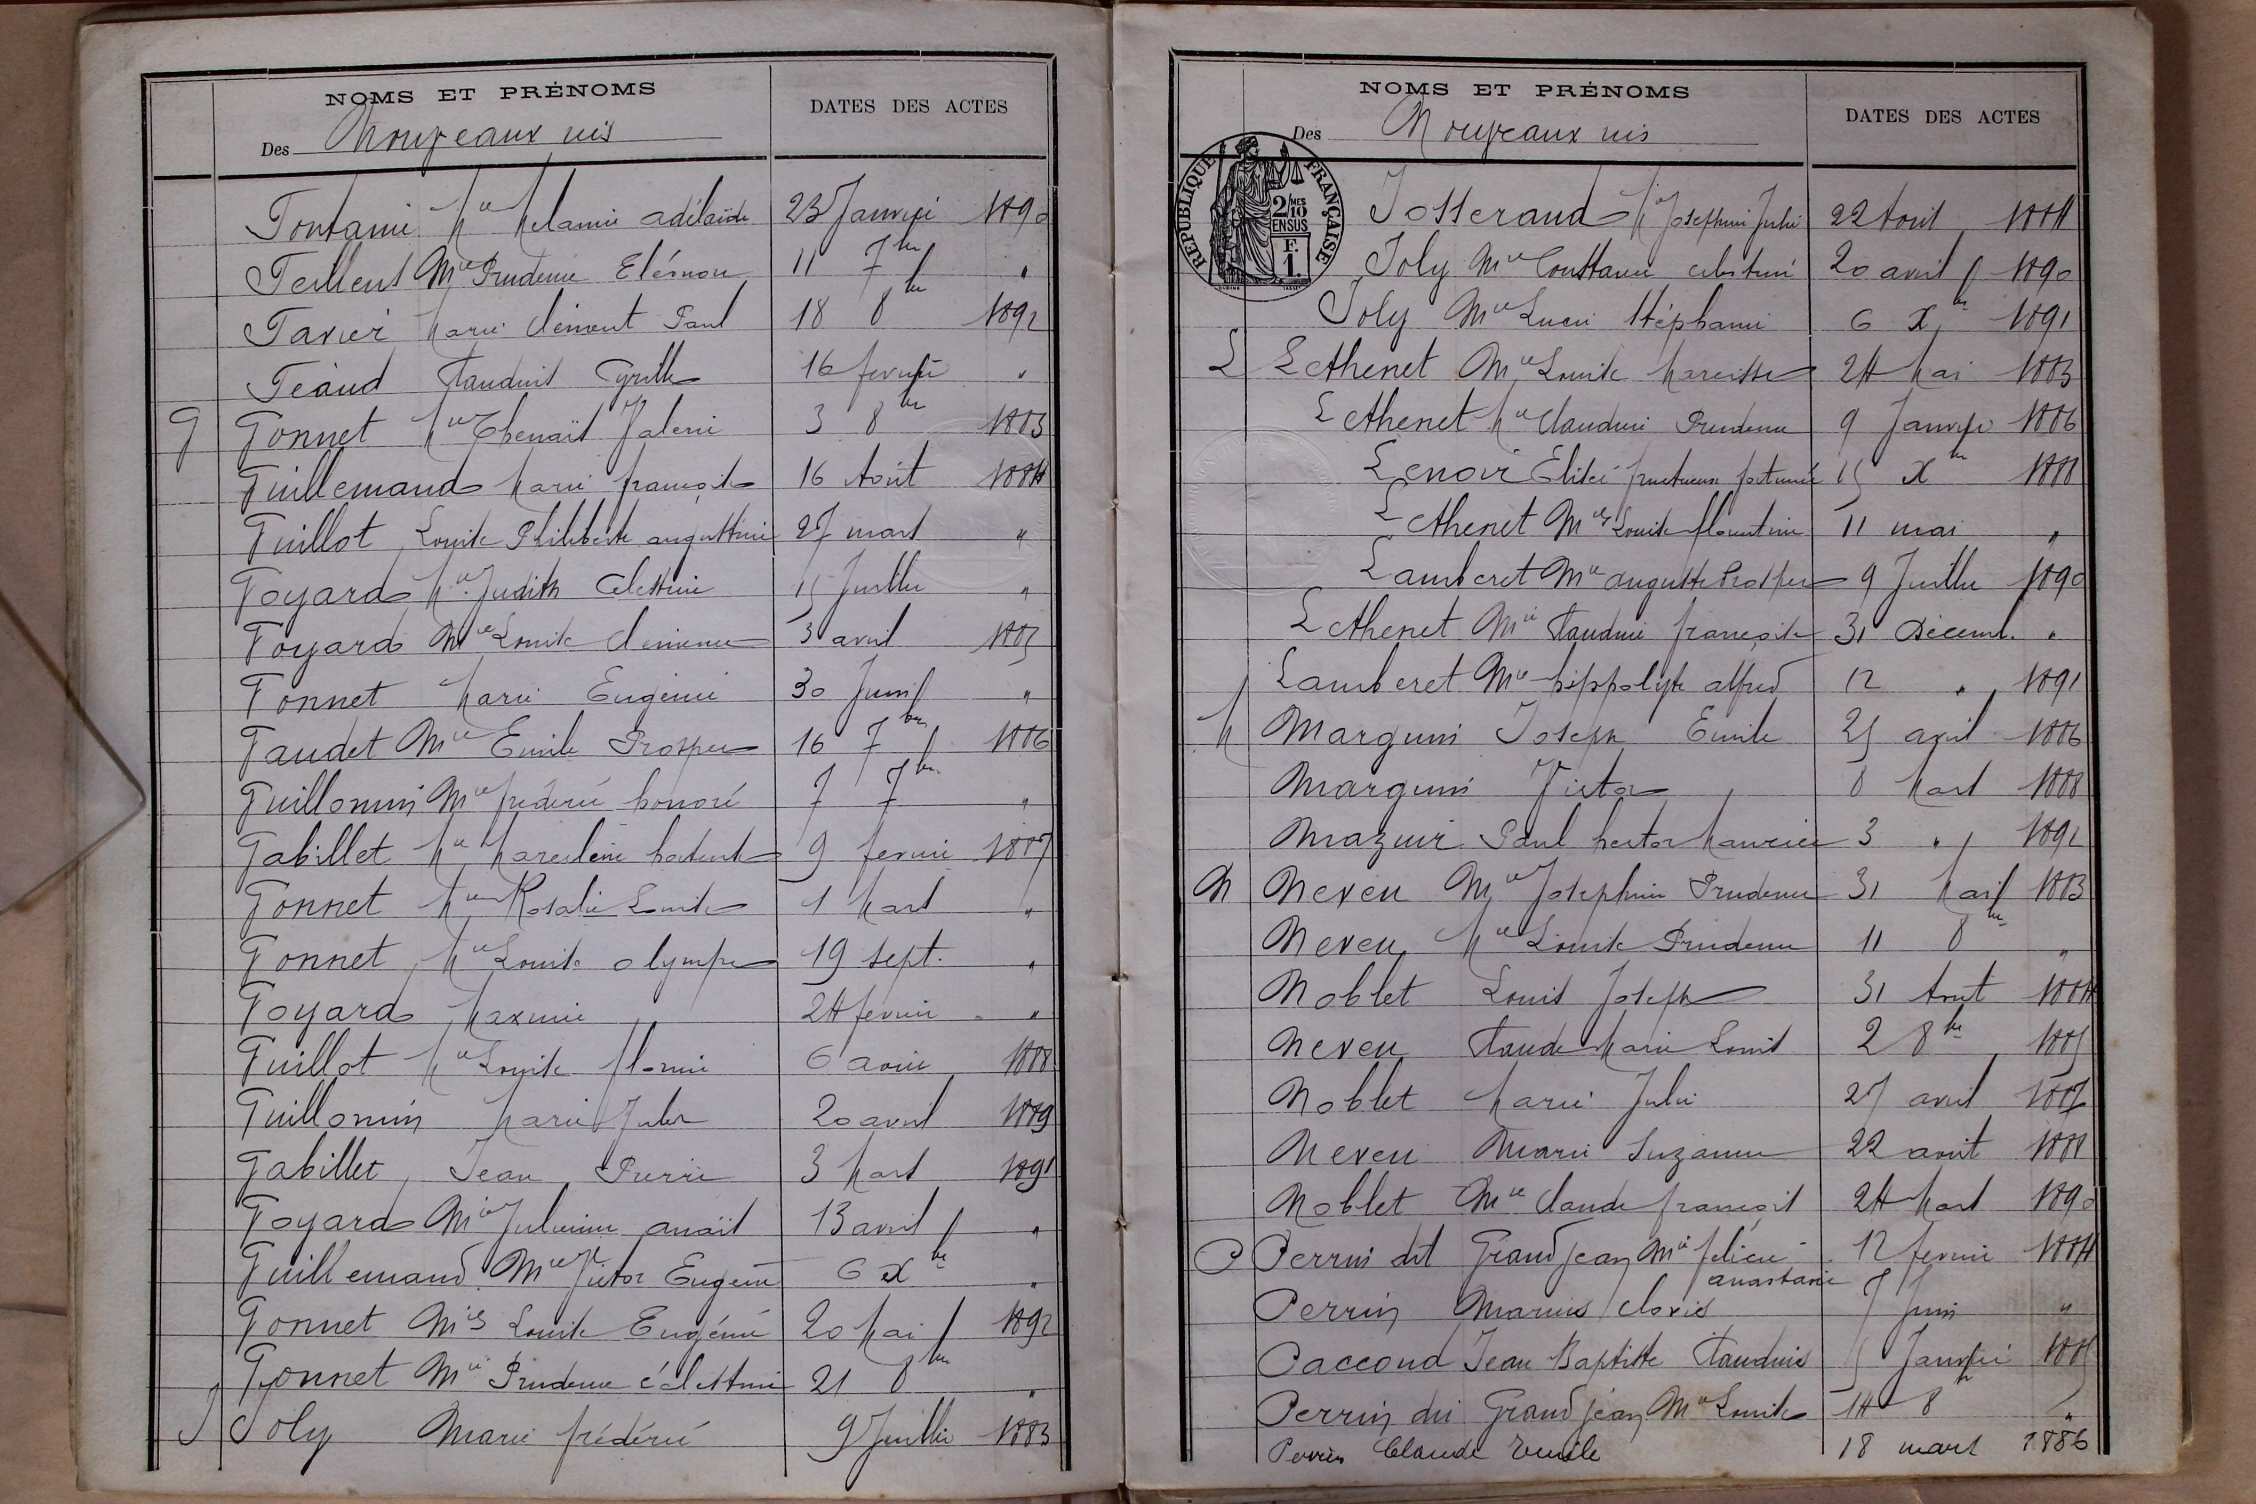 NOMS ET PRÉNOMS
DATES DES ACTES
Des Nouveaux nés
Fontaine Mie Melanie adélaïde 23 Janvier 1890
Feillent Mie Prudence Eléonore 11 7bre "
Favier Marie Clément Paul 18 8bre 1892
Féaud Claudius Cyrille 16 fevrier "
G Gonnet Mie Thenaïs Valerie 3 8bre 1883
Guillemaud Marie françoise 16 Août 1884
Guillot Louise Philiberte augustine 27 mars "
Goyard Mie Judith Celestine 15 Juillet "
Goyard Mie Louise Clemence 3 avril 1885
Gonnet Marie Eugénie 30 Juin "
Gaudet Mie Emile Prosper 16 7bre 1886
Guillomin Mie frédéric honoré 7 7bre "
Gabillet Mie Marceline hortense 9 fevrier 1887
Gonnet Mie Rosalie Louise 1 Mars "
Gonnet Mie Louise olympe 19 sept. "
Goyard Maxime 24 fevrier "
Guillot Mie Louise florine 6 avril 1888
Guillomin Marie Jules 20 avril 1889
Gabillet Jean Pierre 3 Mars 1891
Goyard Mie Julienne anaïs 13 avril "
Guillemaud Mie Victor Eugène 6 Xbre "
Gonnet Mie Louise Eugénie 20 Mai 1892
Gonnet Mie Prudence célestine 21 8bre "
J Joly Marie frédéric 9 Juillet 1883
NOMS ET PRÉNOMS
DATES DES ACTES
Des Nouveaux nés
RÉPUBLIQUE FRANÇAISE
2/10 MES
EN SUS
F.
1.
Josserand Mie Josephine Julie 22 Août 1888
Joly Mie Constance celestine 20 avril 1890
Joly Mie Lucie Stéphanie 6 Xbre 1891
L LAthenet Mie Louise Narcisse 24 Mai 1883
LAthenet Mie Claudine Prudence 9 Janvier 1886
Lenoir Elisée fortuné 15 Xbre 1888
LAthenet Mie Louise florentine 11 mai "
Lamberet Mie auguste Prosper 9 Juillet 1890
LAthenet Mie Claudine françoise 31 Décemb. "
Lamberet Mie hippolyte alfred 12 " 1891
M Marguin Joseph Emile 25 avril 1886
Marguin Victor 8 Mars 1888
Mazuir Paul hector Maurice 3 " 1892
N Neveu Mie Josephine Prudence 31 Mai 1883
Neveu Mie Louise Prudence 11 8bre "
Noblet Louis Joseph 31 Août 1884
Neveu Claude Marie Louis 2 8bre 1885
Noblet Marie Julie 27 avril 1887
Neveu Marie Suzanne 22 août 1888
Noblet Mie Claude françois 24 Mars 1890
P Perrin dit Grandjean Mie felicie 12 fevrier 1884
anastasie
Perrin Marius clovis 7 Juin "
Paccoud Jean Baptiste Claudius 5 Janvier 1885
Perrin dit Grandjean Mie Louise 14 8bre "
Perrin Claude Emile 18 mars 1886